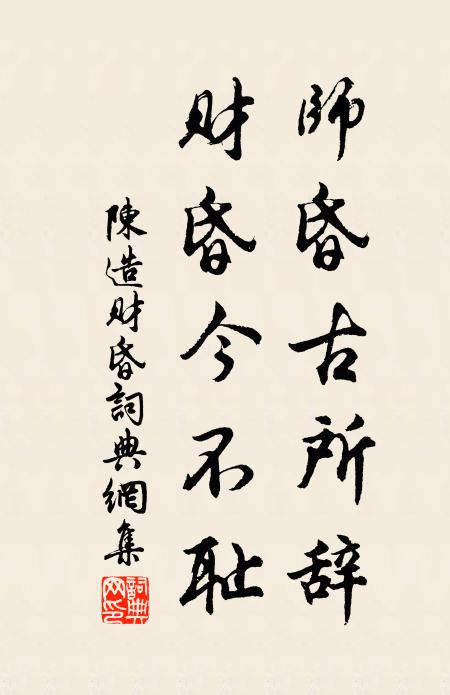 師昏古所辞
財昏今不耻
陳造財昏詞典網集
詞典
网印